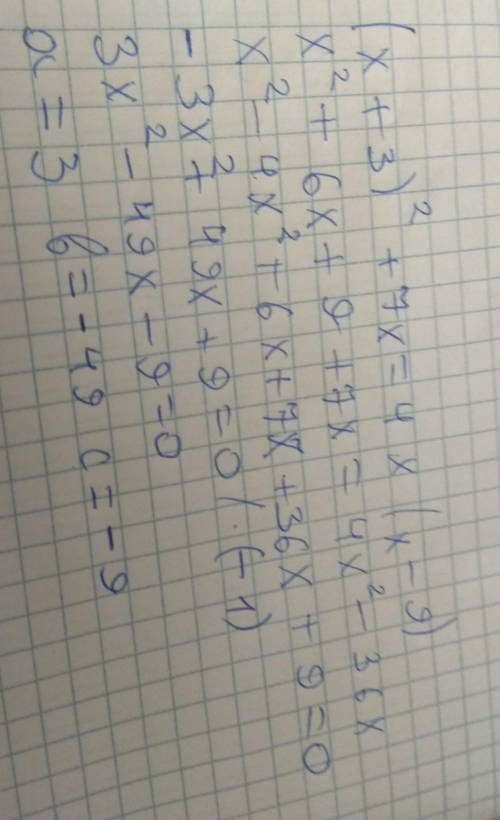 (x + 3)² + 7x = 4x(x - 9)
x² + 6x + 9 + 7x = 4x² - 36x
x² - 4x² + 6x + 7x + 36x + 9 = 0
- 3x² + 49x + 9 = 0 / · (-1)
3x² - 49x - 9 = 0
a = 3 b = - 49 c = - 9